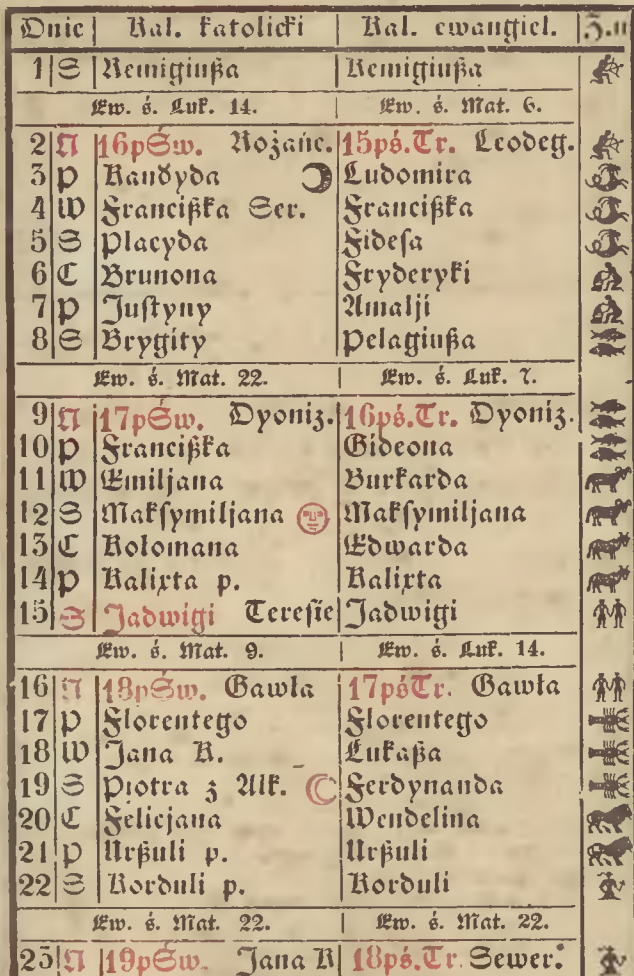 Dnie Kal. katolicki Kal. ewangiel. Z.n
1 S Remigiußa Remigiußa
Ew. ś. Luk. 14. Ew. ś. Mat. 6.
2 N 16pŚw. Rożańc. 15pś.Tr. Leodeg.
3 P Kandyda Ludomira
4 W Francißka Ser. Francißka
5 S Placyda Fidesa
6 C Brunona Fryderyki
7 P Justyny Amalji
8 S Brygity Pelagiußa
Ew. ś. Mat. 22. Ew. ś. Luk. 7.
9 N 17pŚw. Dyoniz. 16pś.Tr. Dyoniz.
10 P Francißka Gideona
11 W Emiljana Burkarda
12 S Maksymiljana Maksymiljana
13 C Kolomana Edwarda
14 P Kalixta p. Kalixta
15 S Jadwigi Teresie Jadwigi
Ew. ś. Mat. 9. Ew. ś. Luk. 14.
16 N 18pŚw. Gawła 17pśTr. Gawła
17 P Florentego Florentego
18 W Jana K. Łukaßa
19 S Piotra z Alk. Ferdynanda
20 C Felicjana Wendelina
21 P Urßuli p. Urßuli
22 S Korduli p. Korduli
Ew. ś. Mat. 22. Ew. ś. Mat. 22.
23 N 19pŚw. Jana K 18pś.Tr. Sewer.